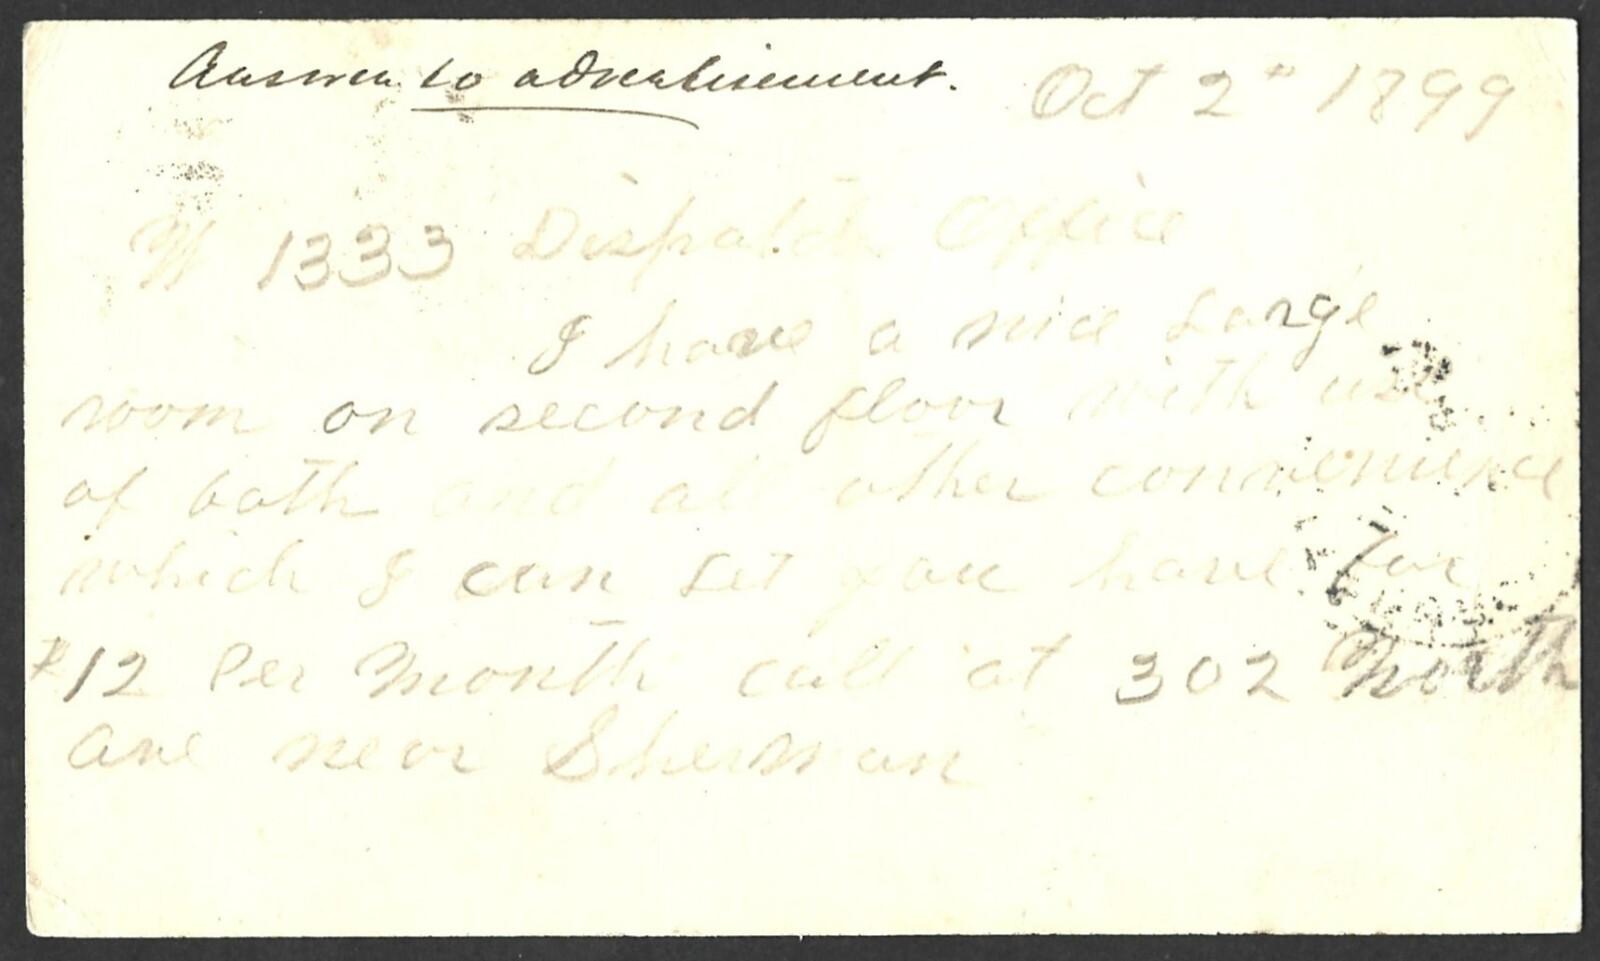 Answer to advertisement.
Oct 2" 1899
W 1333 Dispatch Office
I have a nice Large
room on second floor with use
of bath and all other convenience
which I can Let you have for
$12 Per Month call at 302 North
Ave near Sherman